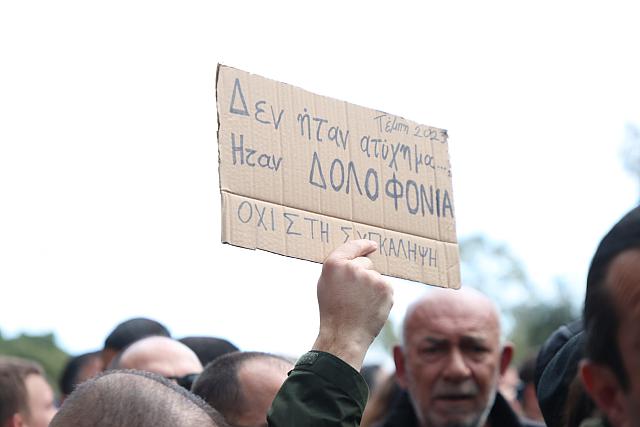 Τέμπη 2023
Δεν ήταν ατύχημα...
Ηταν ΔΟΛΟΦΟΝΙΑ
ΟΧΙ ΣΤΗ ΣΥΓΚΑΛΗΨΗ